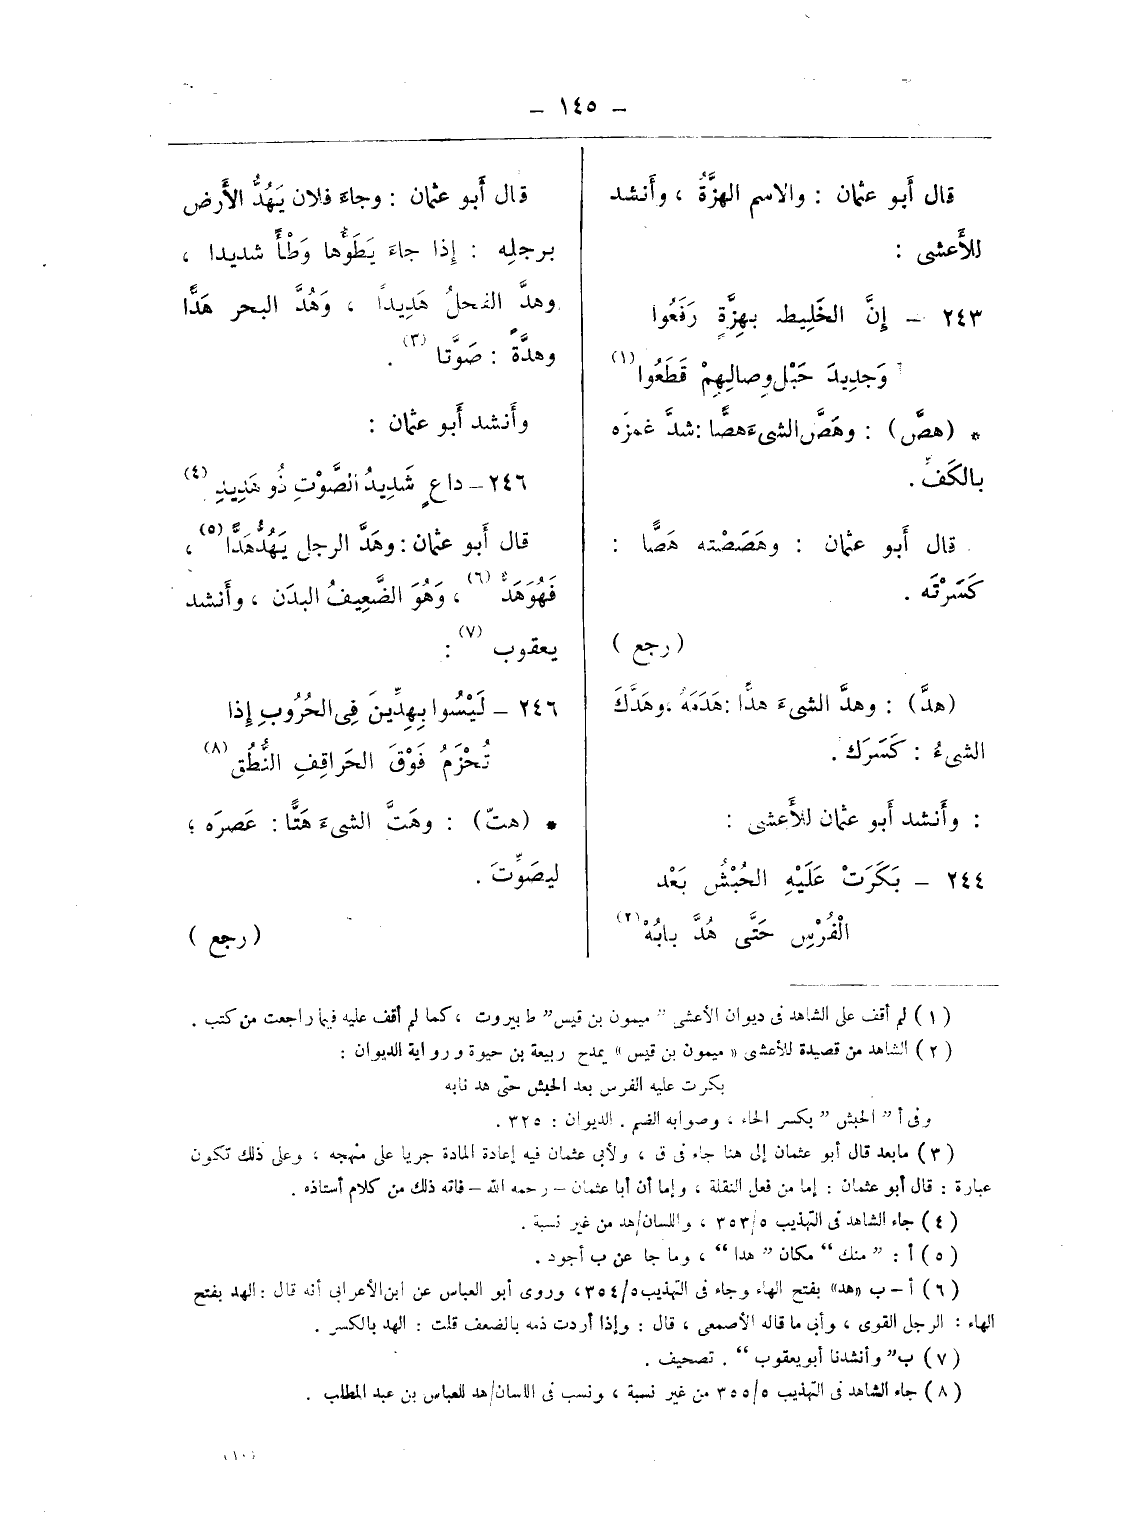 – ١٤٥ –
قال أَبو عثمان : والاسم الهزَّةُ ، وأَنشد
للأَعشى :
٢٤٣ – إِنَّ الخَلِيط بِهِزَّةٍ رَفَعُوا
وَجدِيدَ حَبْلِ وصالِهِمْ قَطَعُوا (١)
* (هصَّ) : وهَصَّ الشىءَ هصًّا : شدَّ غمزَه
بالكَفِّ .
قال أَبو عثمان : وهَصَصْته هَصًّا :
كَسَرْتَه .
( رجع )
(هدَّ) : وهدَّ الشىءَ هدًّا : هَدَمَهُ ، وهَدَّكَ
الشىءُ : كَسَرَك .
: وأَنشد أَبو عثمان للأَعشى :
٢٤٤ – بَكَرَتْ عَلَيْهِ الحُبْشُ بَعْد
الْفُرْسِ حَتَّى هُدَّ بابُهْ (٢)
قال أَبو عثمان : وجاءَ فلان يَهُدُّ الأَرض
برجلِه : إِذا جاءَ يَطَوُّها وَطْأً شديدا ،
وهدَّ الفحلُ هَدِيداً ، وَهُدَّ البحر هَدًّا
وهدَّةً : صَوَّتا (٣) .
وأَنشد أَبو عثمان :
٢٤٦ – داعٍ شَدِيدُ الصَّوْتِ ذُو هَدِيدِ (٤)
قال أَبو عثمان : وهَدَّ الرجل يَهُدُّ هَدًّا (٥) ،
فَهُوَ هَدٌّ (٦) ، وَهُوَ الضَّعِيفُ البدَن ، وأَنشد
يعقوب (٧) :
٢٤٦ – لَيْسُوا بِهِدِّينَ فِى الحُرُوبِ إِذا
تُحْزَمُ فَوْقَ الحَراقِفِ النُّطُق (٨)
* (هتّ) : وهَتَّ الشىءَ هَتًّا : عَصرَه ؛
ليصَوِّتَ .
( رجع )
( ١ ) لم أقف على الشاهد فى ديوان الأعشى ” ميمون بن قيس “ ط بيروت ، كما لم أقف عليه فيما راجعت من كتب .
( ٢ ) الشاهد من قصيدة للأعشى « ميمون بن قيس » يمدح ربيعة بن حيوة ورواية الديوان :
بكرت عليه الفرس بعد الحبش حتى هد نابه
وفى أ ” الحبش “ بكسر الحاء ، وصوابه الضم . الديوان : ٣٢٥ .
( ٣ ) مابعد قال أبو عثمان إلى هنا جاء فى ق ، ولأبى عثمان فيه إعادة المادة جريا على منهجه ، وعلى ذلك تكون
عبارة : قال أبو عثمان : إما من فعل النقلة ، وإما أن أبا عثمان – رحمه الله – فاته ذلك من كلام أستاذه .
( ٤ ) جاء الشاهد فى التهذيب ٣٥٣/٥ ، واللسان/هد من غير نسبة .
( ٥ ) أ : ” منك “ مكان ” هدا “ ، وما جا عن ب أجود .
( ٦ ) أ – ب «هد» بفتح الهاء وجاء فى التهذيب ٣٥٤/٥ ، وروى أبو العباس عن ابن الأعرابى أنه قال : الهد بفتح
الهاء : الرجل القوى ، وأبى ما قاله الأصمعى ، قال : وإذا أردت ذمه بالضعف قلت : الهد بالكسر .
( ٧ ) ب” وأنشدنا أبو يعقوب “ . تصحيف .
( ٨ ) جاء الشاهد فى التهذيب ٣٥٥/٥ من غير نسبة ، ونسب فى اللسان/هد للعباس بن عبد المطلب .